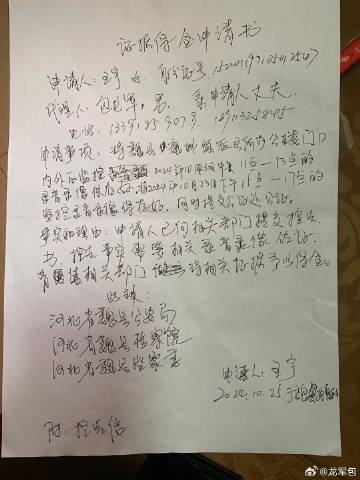 证据保全申请书
申请人:王宇 女, 身份证号
代理人:包龙军,男, 系申请人丈夫。
电话:
申请事项:将魏县 办公楼门口
内外的监控 2024年10月23日中午11点—13点的
录音录像保存好,将2024年10月23日下午15点—17点的
监控录音录像保存好,同时提交公证处公证。
事实和理由:申请人已向相关部门提交控告
书,控告事实需要相关录音录像佐证。
相关部门 将相关证据予以保全。
此致:
河北省魏县公安局
河北省魏县检察院
河北省魏县监察委
申请人:王宇
2024.10.25于
附:控告信
@龙军包